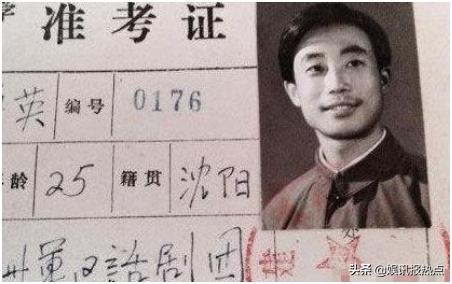 准考证
英 编号 0176
龄 25 籍贯 沈阳
话剧团
头条 @娱讯报热点